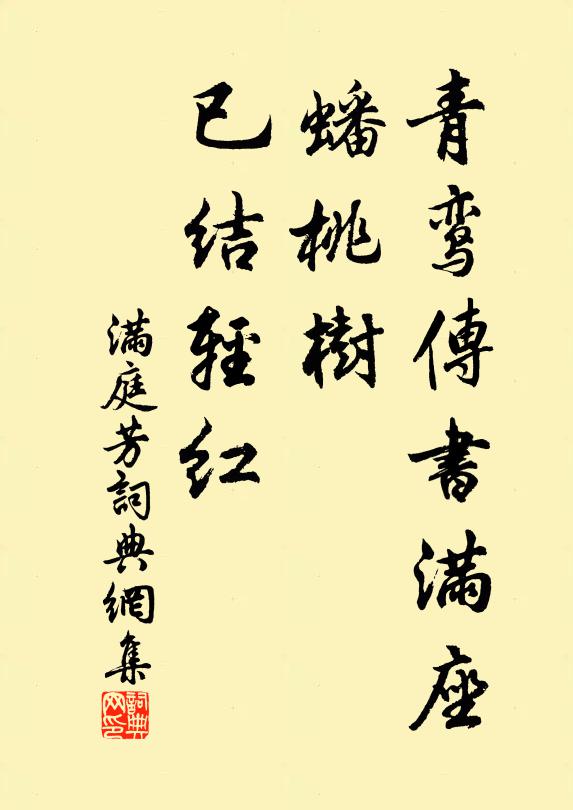 青鸾傳書满座
蟠桃樹
已结輕红
满庭芳詞典網集
詞典网印